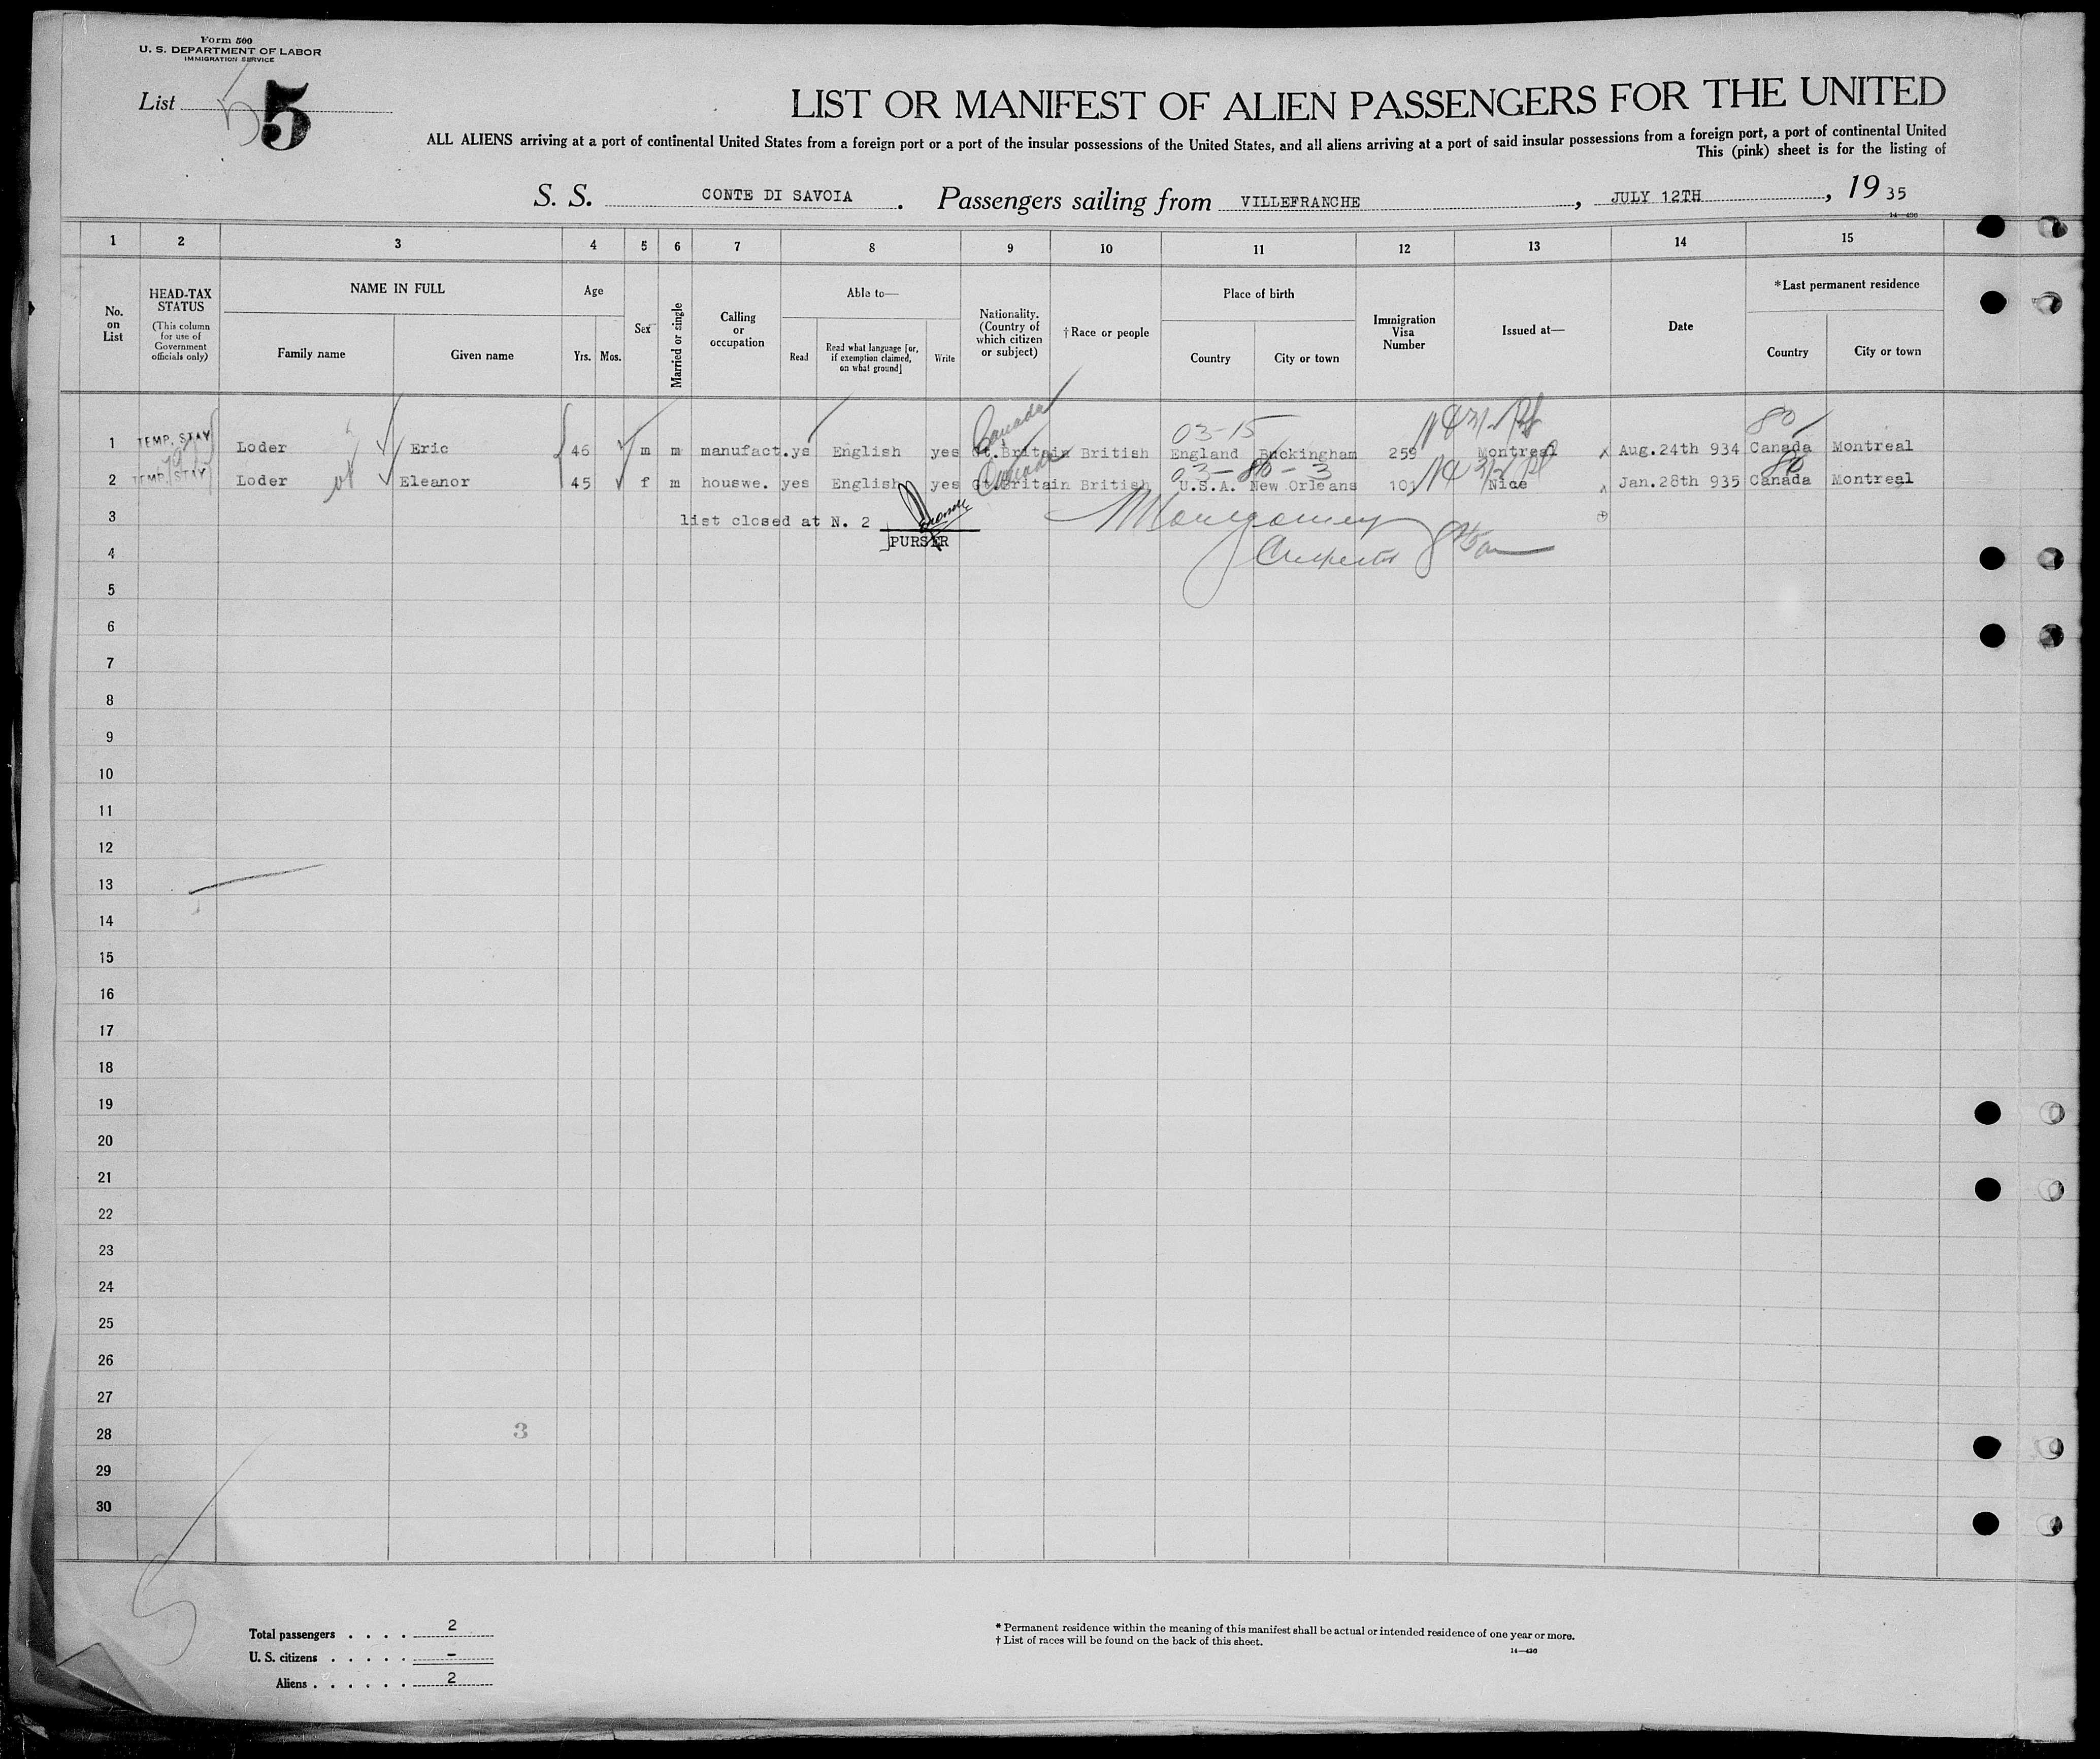 Form 500
U. S. DEPARTMENT OF LABOR
IMMIGRATION SERVICE
List 5 5
LIST OR MANIFEST OF ALIEN PASSENGERS FOR THE UNITED
ALL ALIENS arriving at a port of continental United States from a foreign port or a port of the insular possessions of the United States, and all aliens arriving at a port of said insular possessions from a foreign port, a port of continental United
This (pink) sheet is for the listing of
S. S. CONTE DI SAVOIA . Passengers sailing from VILLEFRANCHE , JULY 12TH , 19 35
14—436
1 2 3 4 5 6 7 8 9 10 11 12 13 14 15
No. on List
HEAD-TAX STATUS
(This column for use of Government officials only)
NAME IN FULL
Family name Given name
Age
Yrs. Mos.
Sex
Married or single
Calling or occupation
Able to—
Read
Read what language [or, if exemption claimed, on what ground]
Write
Nationality. (Country of which citizen or subject)
†Race or people
Place of birth
Country City or town
Immigration Visa Number
Issued at—
Date
*Last permanent residence
Country City or town
Canada 03-15 80
1 TEMP. STAY Loder Eric 46 m m manufact. ys English yes Gt.Britain British England Buckingham 259 Montreal Aug.24th 934 Canada Montreal
Canada 03-80-3 80
2 TEMP. STAY Loder Eleanor 45 f m houswe. yes English yes Gt.Britain British U.S.A. New Orleans 101 Nice Jan.28th 935 Canada Montreal
3 list closed at N. 2 Montgomery
PURSER
4
5
6
7
8
9
10
11
12
13
14
15
16
17
18
19
20
21
22
23
24
25
26
27
28 3
29
30
Total passengers . . . . 2
U. S. citizens . . . . . –
Aliens . . . . . . 2
* Permanent residence within the meaning of this manifest shall be actual or intended residence of one year or more.
† List of races will be found on the back of this sheet.
14—436